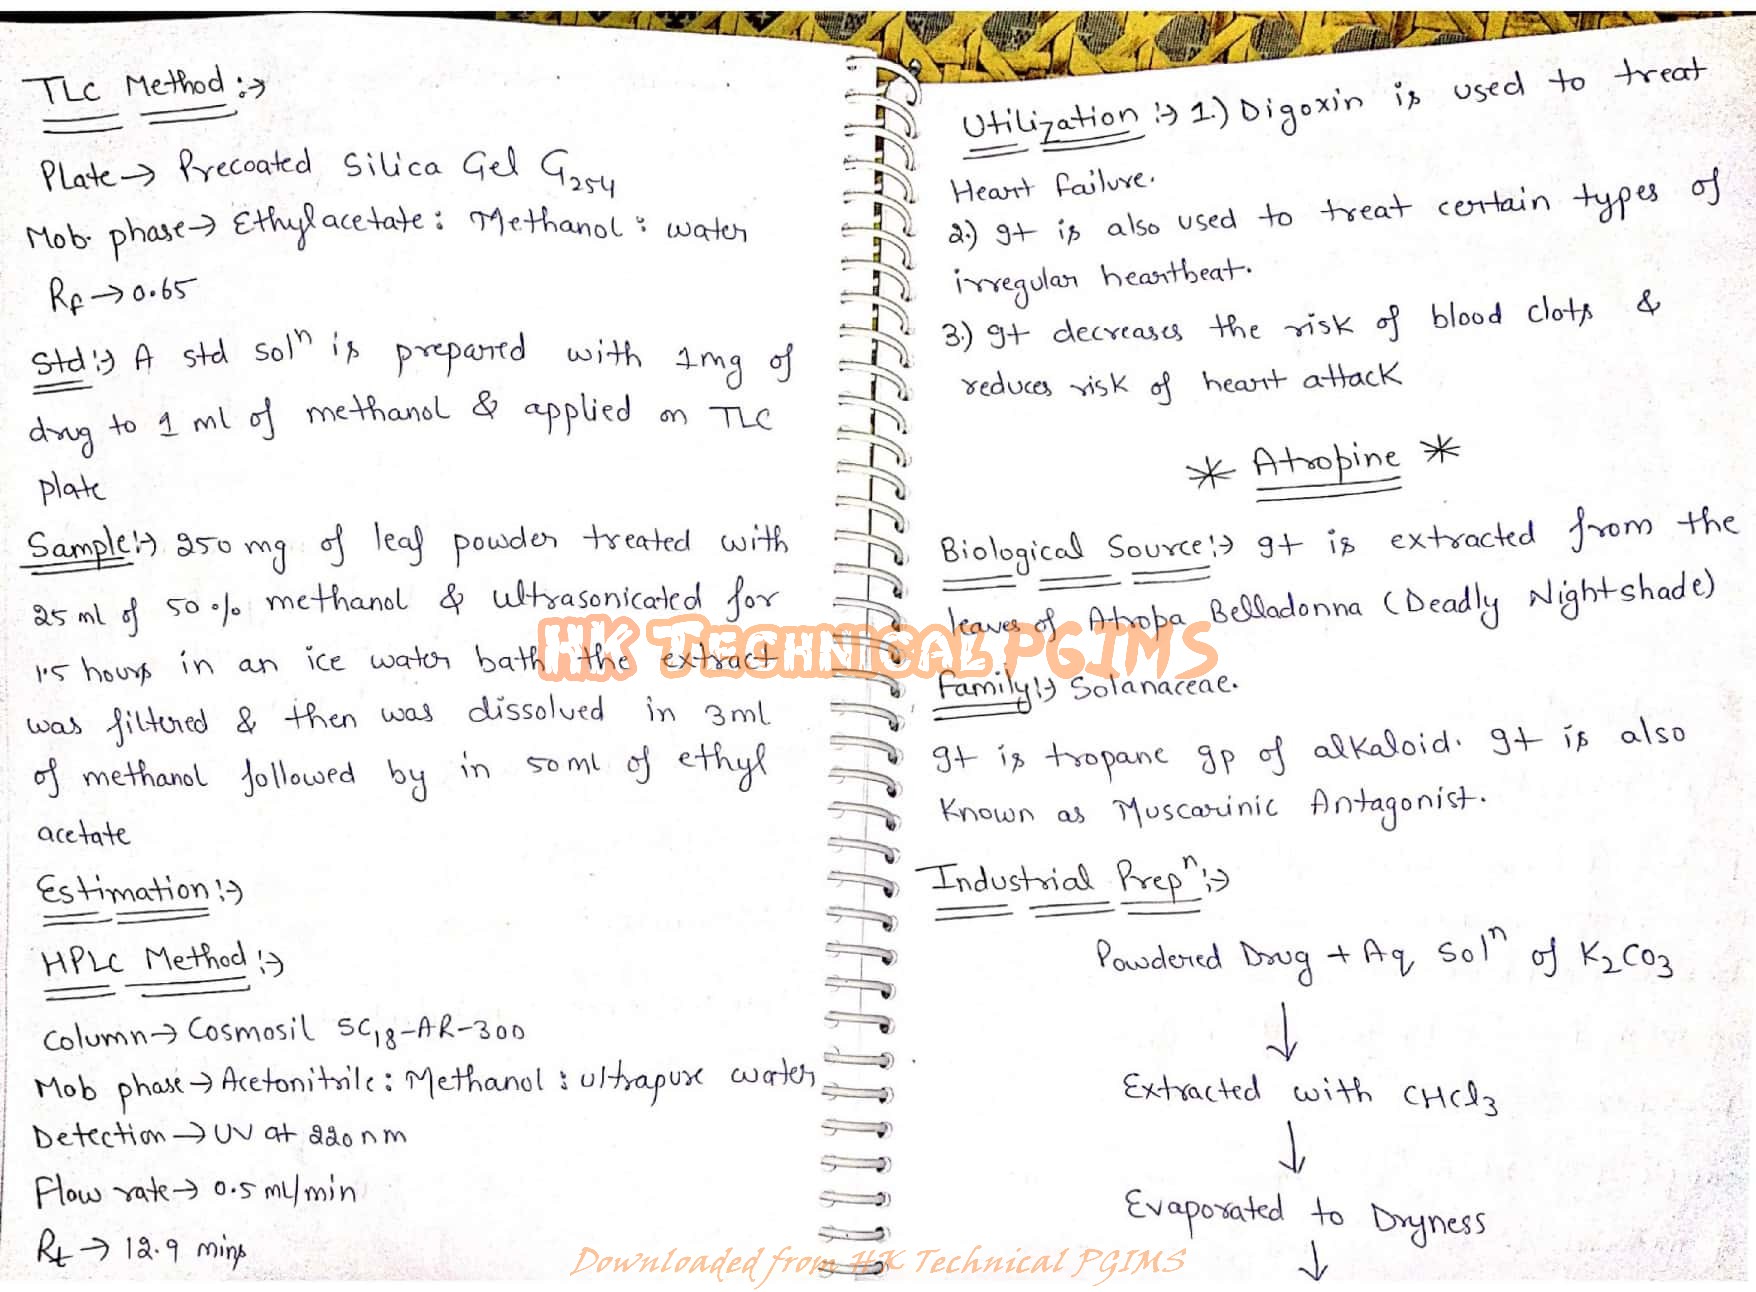 TLC Method :→
Plate → Precoated Silica Gel G254
Mob. phase → Ethylacetate : Methanol : water
Rf → 0.65
Std :→ A std solⁿ is prepared with 1mg of
drug to 1 ml of methanol & applied on TLC
plate
Sample :→ 250 mg of leaf powder treated with
25 ml of 50% methanol & ultrasonicated for
1.5 hours in an ice water bath the extract
was filtered & then was dissolved in 3ml
of methanol followed by in 50ml of ethyl
acetate
Estimation :→
HPLC Method :→
Column → Cosmosil 5C18-AR-300
Mob phase → Acetonitrile : Methanol : ultrapure water
Detection → UV at 220nm
Flow rate → 0.5 ml/min
Rt → 12.9 mins
Utilization :→ 1.) Digoxin is used to treat
Heart failure.
2.) It is also used to treat certain types of
irregular heartbeat.
3.) It decreases the risk of blood clots &
reduces risk of heart attack
* Atropine *
Biological Source :→ It is extracted from the
leaves of Atropa Belladonna (Deadly Nightshade)
Family :→ Solanaceae.
It is tropane gp of alkaloid. It is also
Known as Muscarinic Antagonist.
Industrial Prepⁿ :→
Powdered Drug + Aq Solⁿ of K2CO3
↓
Extracted with CHCl3
↓
Evaporated to Dryness
↓
HK Technical PGIMS
Downloaded from HK Technical PGIMS